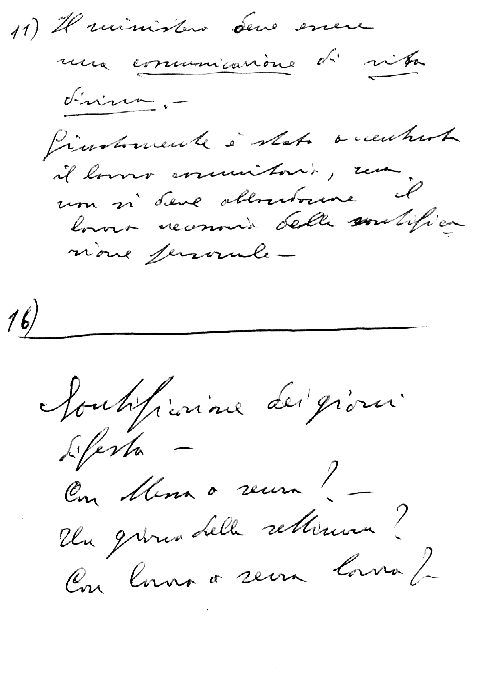 11) Il ministero deve essere
una comunicazione di vita
divina. -
Giustamente è stato accentuato
il lavoro comunitario, ma
non si deve abbandonare il
lavoro necessario della santifica
zione personale -
16)
Santificazione dei giorni
di festa -
Con Messa o senza? -
Un giorno della settimana?
Con lavoro o senza lavoro? -